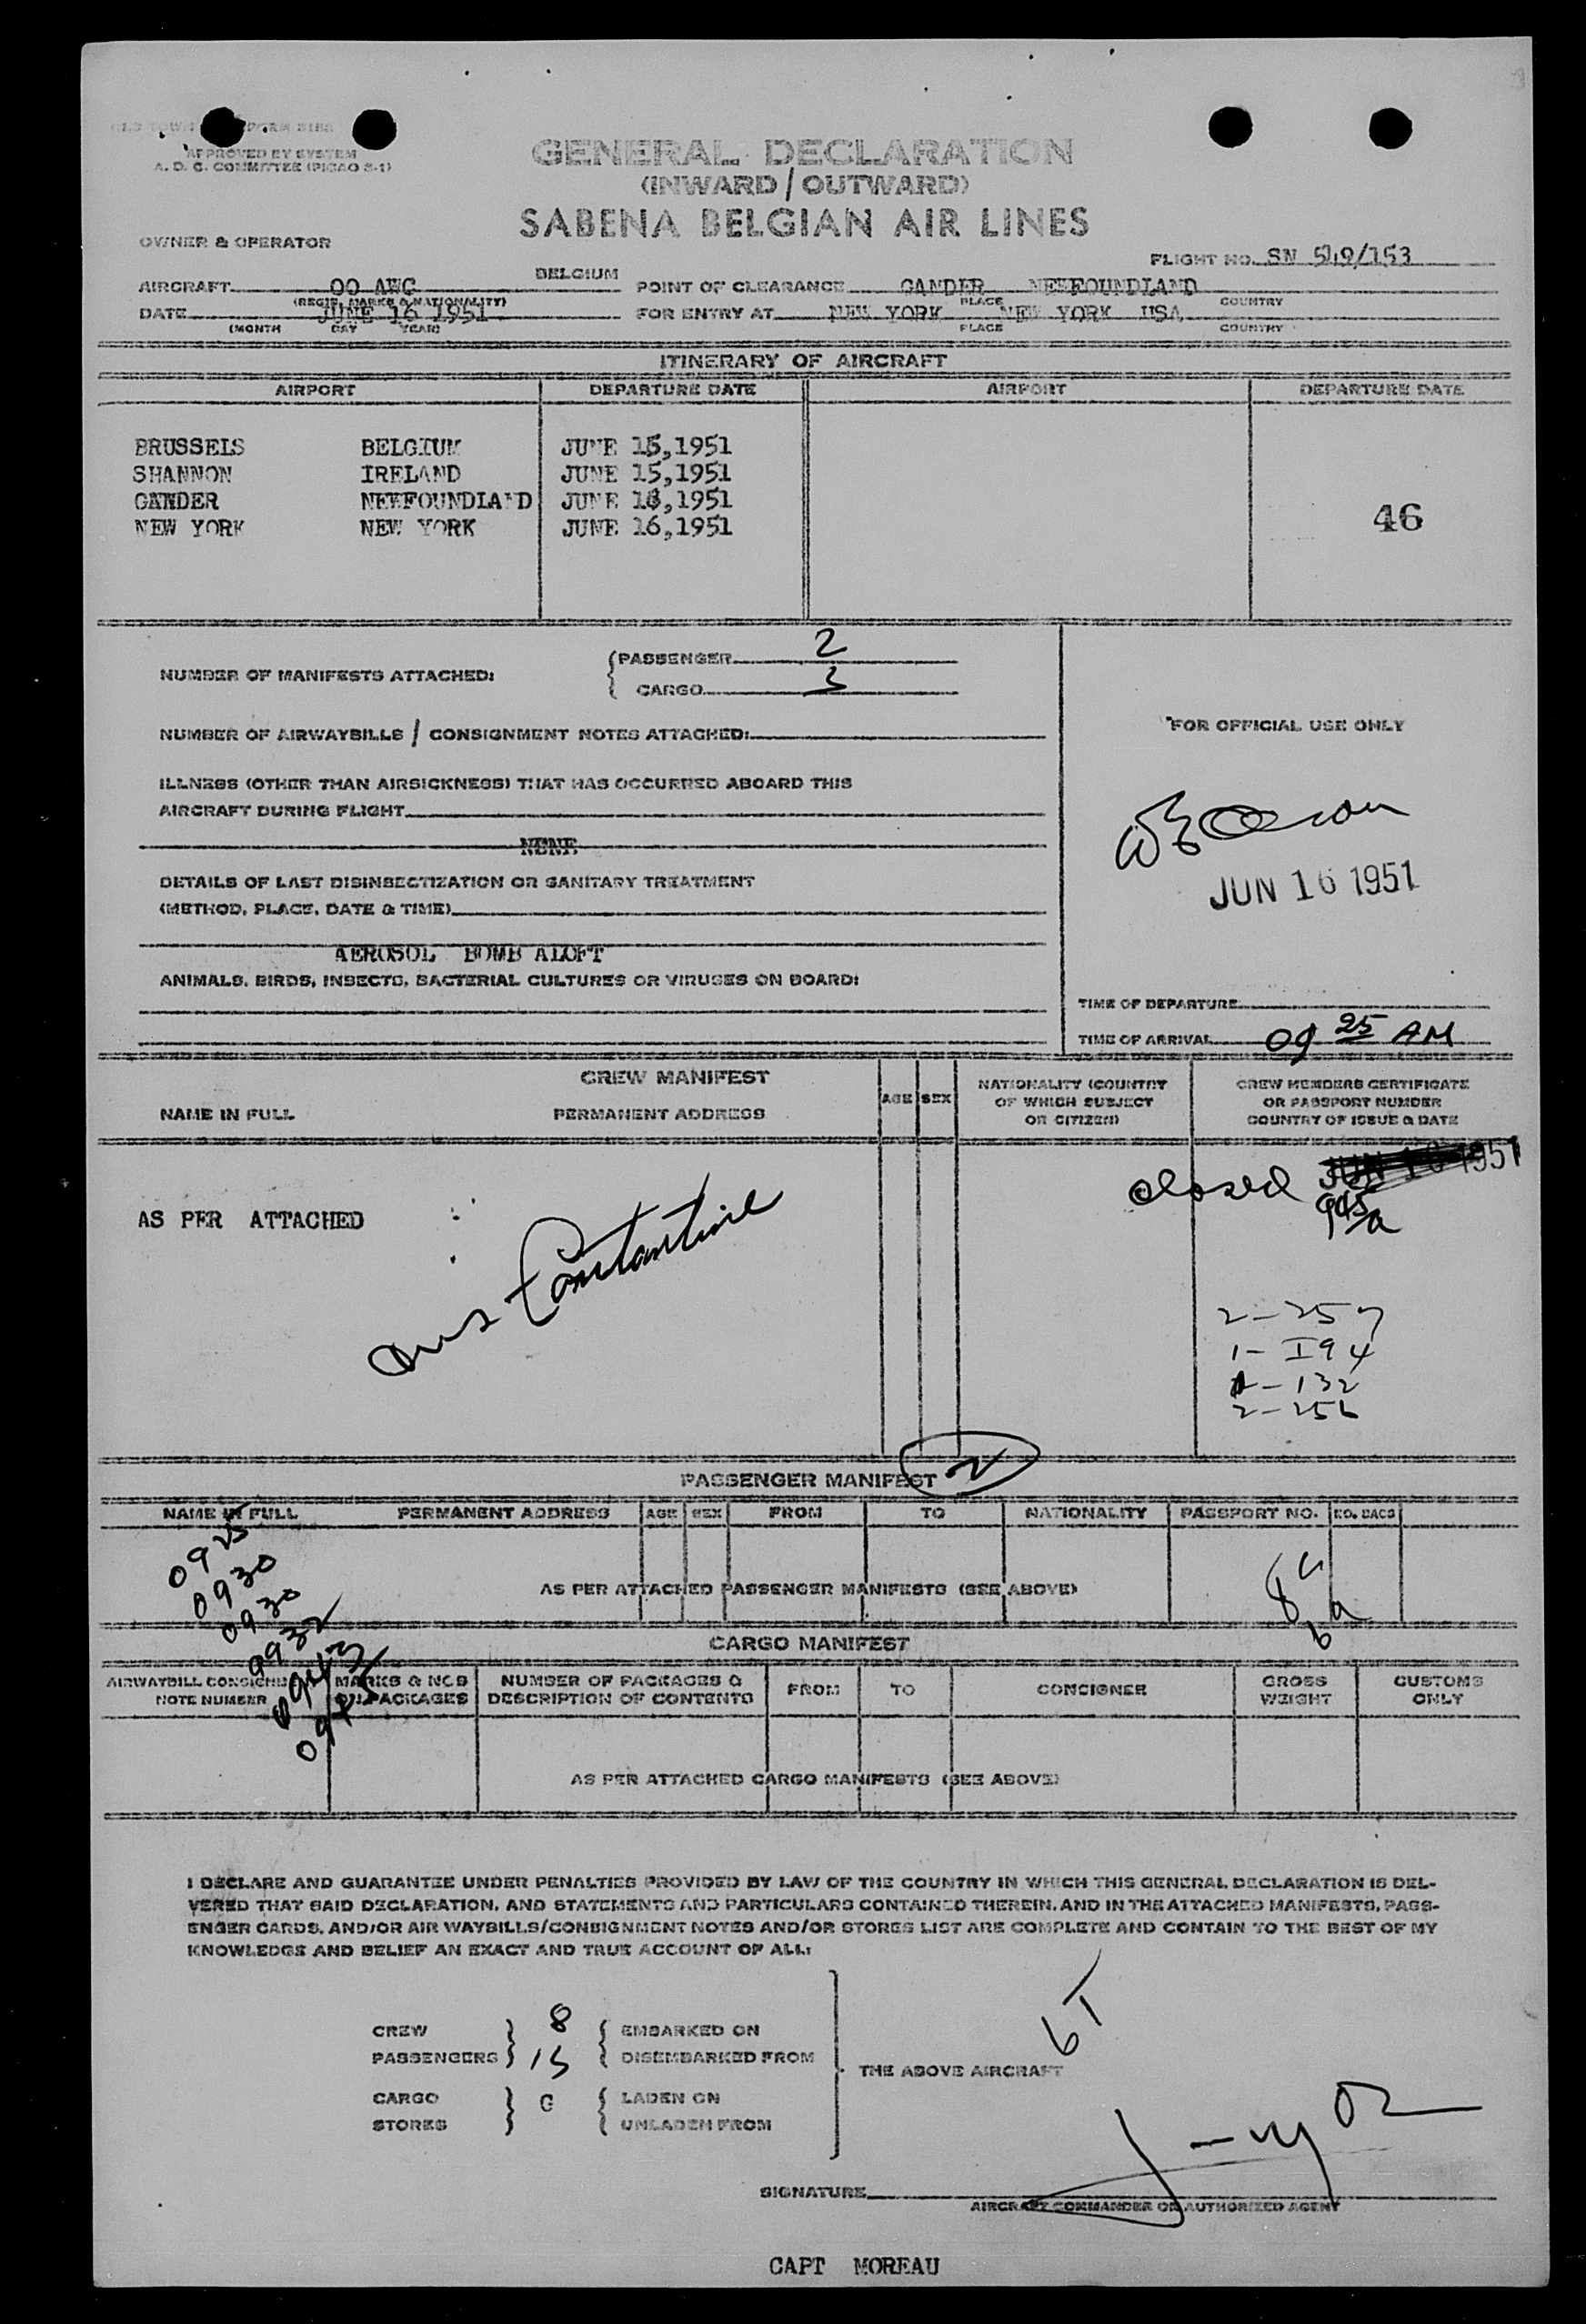 APPROVED BY SYSTEM
A. D. C. COMMITTEE (PICAO S-1)
GENERAL DECLARATION
(INWARD / OUTWARD)
SABENA BELGIAN AIR LINES
OWNER & OPERATOR
FLIGHT NO. SN 549/153
AIRCRAFT OO AWC BELGIUM POINT OF CLEARANCE GANDER NEWFOUNDLAND
(REGIS. MARKS & NATIONALITY) PLACE COUNTRY
DATE JUNE 16 1951 FOR ENTRY AT NEW YORK NEW YORK USA
(MONTH DAY YEAR) PLACE COUNTRY
ITINERARY OF AIRCRAFT
AIRPORT DEPARTURE DATE AIRPORT DEPARTURE DATE
BRUSSELS BELGIUM JUNE 15,1951
SHANNON IRELAND JUNE 15,1951
GANDER NEWFOUNDLAND JUNE 16,1951
NEW YORK NEW YORK JUNE 16,1951
46
NUMBER OF MANIFESTS ATTACHED:
PASSENGER 2
CARGO 3
NUMBER OF AIRWAYBILLS / CONSIGNMENT NOTES ATTACHED:
FOR OFFICIAL USE ONLY
ILLNESS (OTHER THAN AIRSICKNESS) THAT HAS OCCURRED ABOARD THIS
AIRCRAFT DURING FLIGHT
NONE
DETAILS OF LAST DISINSECTIZATION OR SANITARY TREATMENT
(METHOD, PLACE, DATE & TIME)
JUN 16 1951
AEROSOL BOMB ALOFT
ANIMALS, BIRDS, INSECTS, BACTERIAL CULTURES OR VIRUSES ON BOARD:
TIME OF DEPARTURE
TIME OF ARRIVAL 09 25 AM
CREW MANIFEST
NAME IN FULL PERMANENT ADDRESS AGE SEX NATIONALITY (COUNTRY
OF WHICH SUBJECT
OR CITIZEN)
CREW MEMBERS CERTIFICATE
OR PASSPORT NUMBER
COUNTRY OF ISSUE & DATE
closed JUN 16 1951
945 a
AS PER ATTACHED
Constantine
2-257
1-I94
132
2-256
PASSENGER MANIFEST 2
NAME IN FULL PERMANENT ADDRESS AGE SEX FROM TO NATIONALITY PASSPORT NO. NO. BAGS
AS PER ATTACHED PASSENGER MANIFESTS (SEE ABOVE)
0925
0930
0930
0932
0943
0945
8 c
6 a
CARGO MANIFEST
AIRWAYBILL CONSIGNMENT NOTE NUMBER
MARKS & NOS ON PACKAGES
NUMBER OF PACKAGES & DESCRIPTION OF CONTENTS
FROM TO CONSIGNER GROSS WEIGHT CUSTOMS ONLY
AS PER ATTACHED CARGO MANIFESTS (SEE ABOVE)
I DECLARE AND GUARANTEE UNDER PENALTIES PROVIDED BY LAW OF THE COUNTRY IN WHICH THIS GENERAL DECLARATION IS DEL-
VERED THAT SAID DECLARATION, AND STATEMENTS AND PARTICULARS CONTAINED THEREIN, AND IN THE ATTACHED MANIFESTS, PASS-
ENGER CARDS, AND/OR AIR WAYBILLS/CONSIGNMENT NOTES AND/OR STORES LIST ARE COMPLETE AND CONTAIN TO THE BEST OF MY
KNOWLEDGE AND BELIEF AN EXACT AND TRUE ACCOUNT OF ALL:
CREW 8 EMBARKED ON
PASSENGERS 15 DISEMBARKED FROM
THE ABOVE AIRCRAFT
CARGO LADEN ON
STORES UNLADEN FROM
6T
SIGNATURE
AIRCRAFT COMMANDER OR AUTHORIZED AGENT
CAPT MOREAU